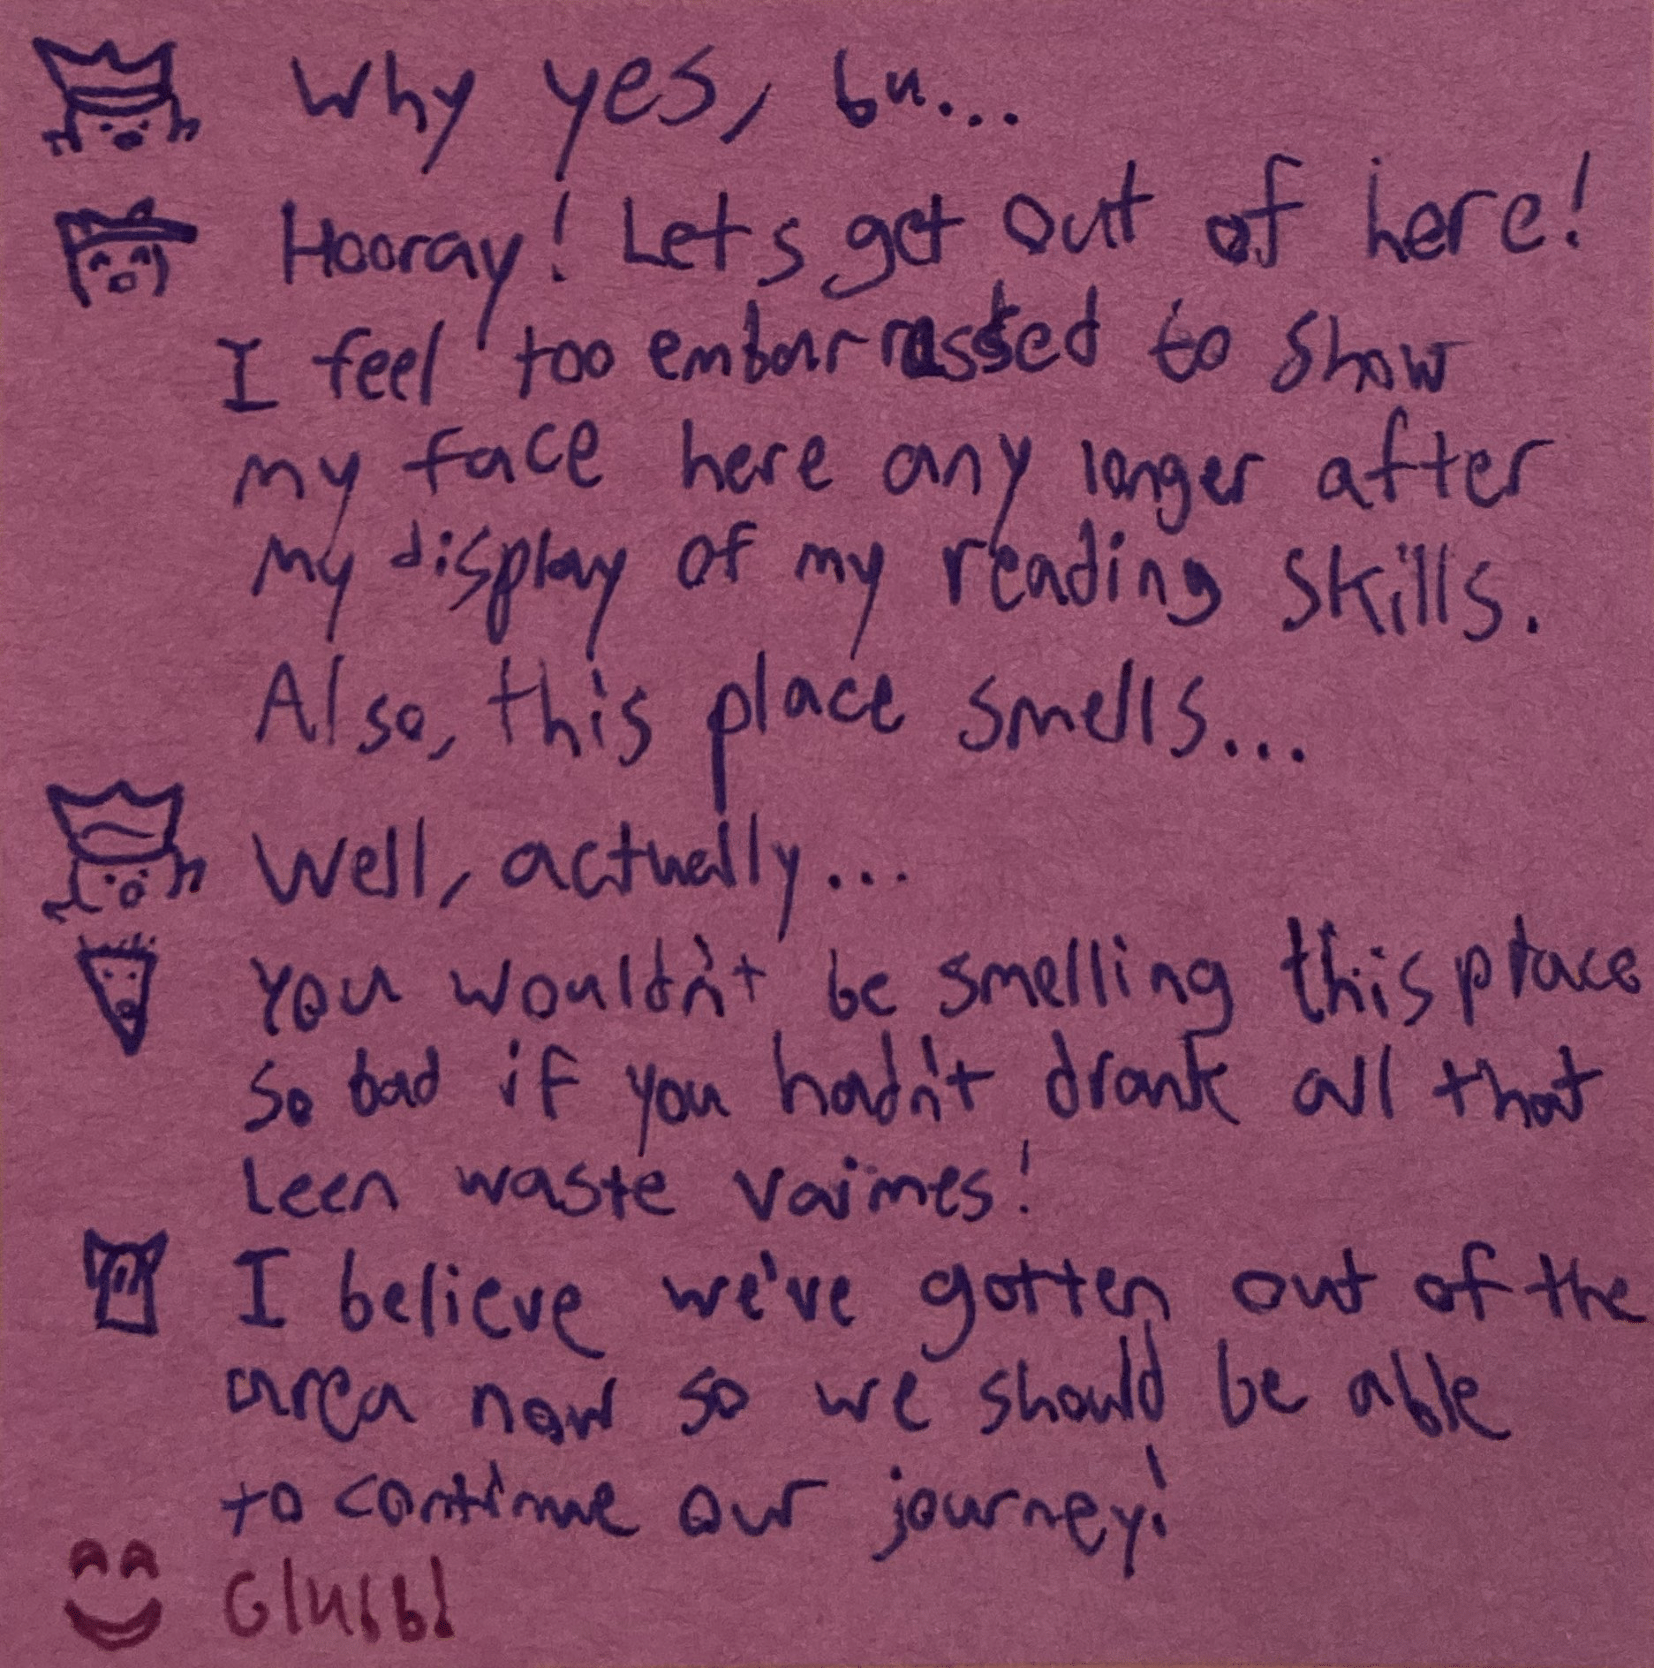 Why yes, bu...
Hooray! Let's get out of here!
I feel too embarrassed to show
my face here any longer after
my display of my reading skills.
Also, this place smells...
Well, actually...
You wouldn't be smelling this place
so bad if you hadn't drank all that
leen waste vaimes!
I believe we've gotten out of the
area now so we should be able
to continue our journey!
Glubb!